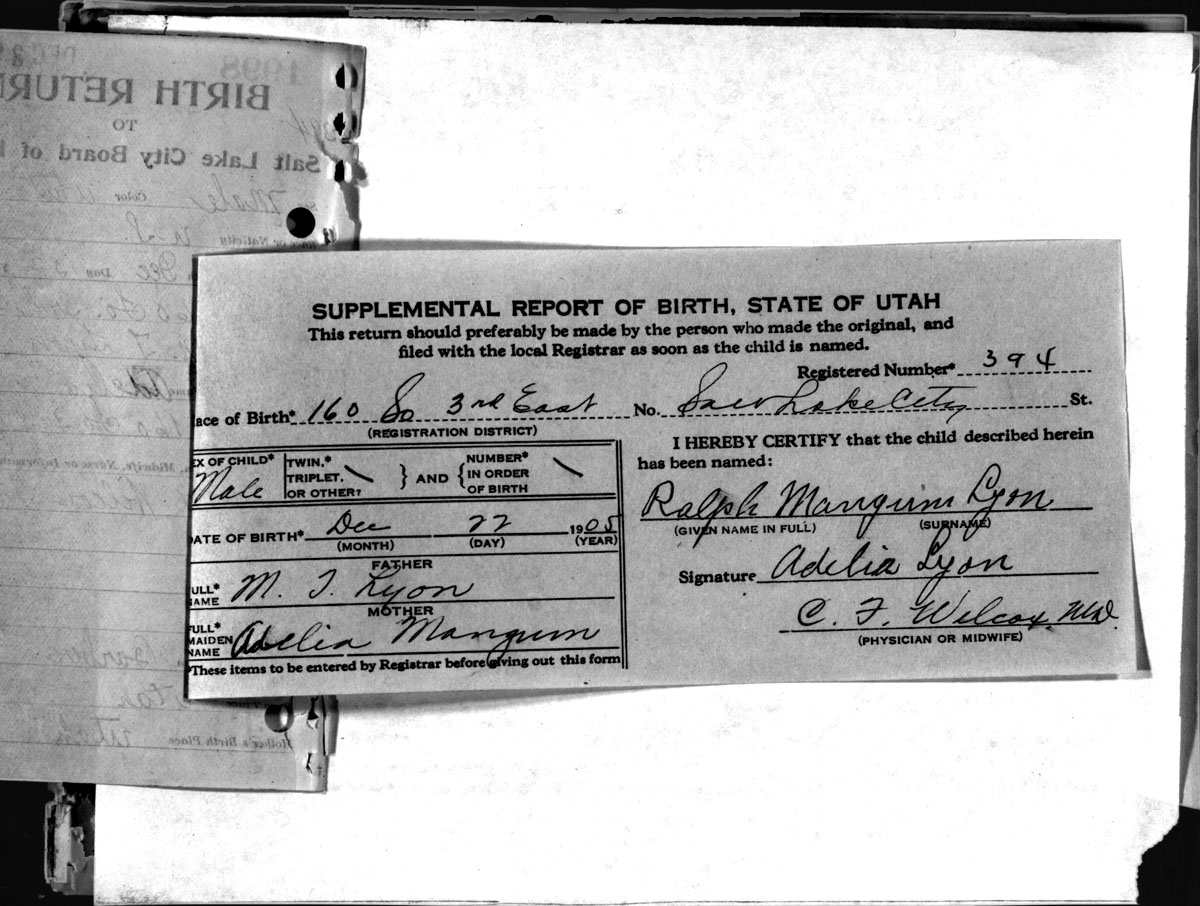 1998
BIRTH RETURN
TO
Salt Lake City Board of
Male Color White
or Nativity U.S.
Dec
Mother's Birth Place Utah
SUPPLEMENTAL REPORT OF BIRTH, STATE OF UTAH
This return should preferably be made by the person who made the original, and
filed with the local Registrar as soon as the child is named.
Registered Number* 394
lace of Birth* 160 So 3rd East No. Salt Lake City St.
(REGISTRATION DISTRICT)
EX OF CHILD* Male TWIN,* TRIPLET, OR OTHER? \ } AND { NUMBER* IN ORDER OF BIRTH \
ATE OF BIRTH* Dec 22 1905
(MONTH) (DAY) (YEAR)
FATHER
ULL* NAME M. T. Lyon
MOTHER
FULL* MAIDEN NAME Adelia Mangum
*These items to be entered by Registrar before giving out this form
I HEREBY CERTIFY that the child described herein
has been named:
Ralph Mangum Lyon
(GIVEN NAME IN FULL) (SURNAME)
Signature Adelia Lyon
C. F. Wilcox, M.D.
(PHYSICIAN OR MIDWIFE)